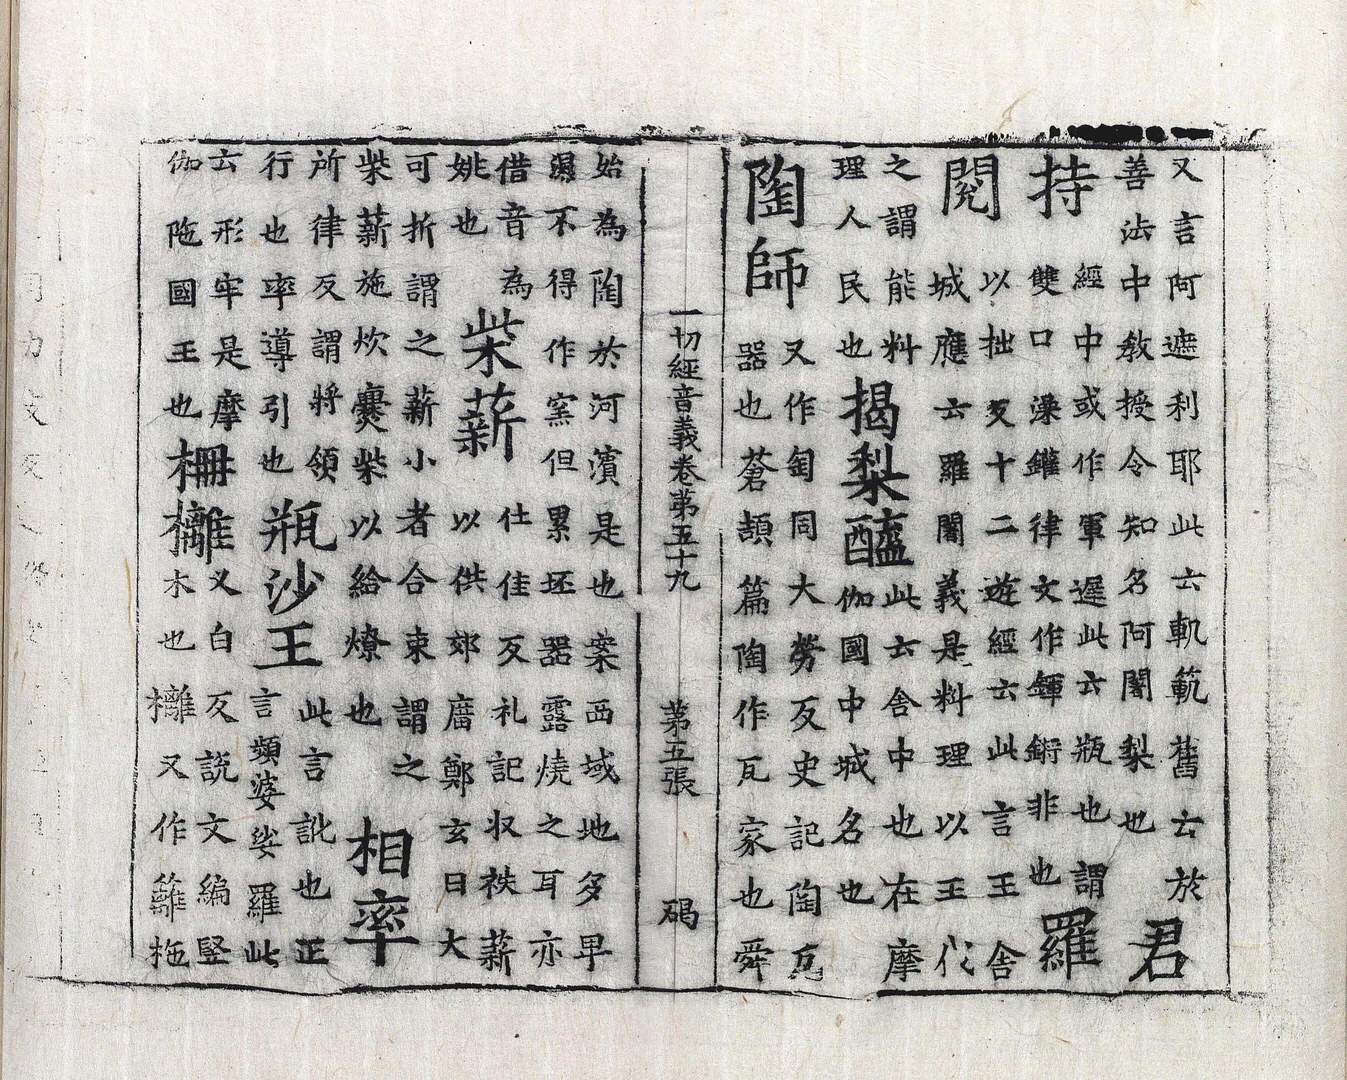 又言阿遮利耶此云軌範舊云於
善法中教授令知名阿闍梨也
君
持
經中或作軍遲此云瓶也謂
雙口澡鑵律文作鍕鏘非也
羅
閱
以拙反十二遊經云此言王舍
城應云羅闍義是料理以王代
之謂能料
理人民也
揭梨醯
此云舍中也在摩
伽國中城名也
陶師
又作匋同大勞反史記陶瓦
器也蒼頡篇陶作瓦家也舜
一切經音義卷第五十九 第五張 碣
始為陶於河濱是也案西域地多早
濕不得作窯但累坯器露燒之耳亦
借音為
姚也
柴薪
仕佳反礼記収秩薪
以供郊庿鄭玄曰大
可折謂之薪小者合束謂之
柴薪施炊爨柴以給燎也
相率
所律反謂將領
行也率導引也
瓶沙王
此言訛也正
言頻婆娑羅此
云形牢是摩
伽陁國王也
柵㰚
又白反説文編竪
木也㰚又作籬杝